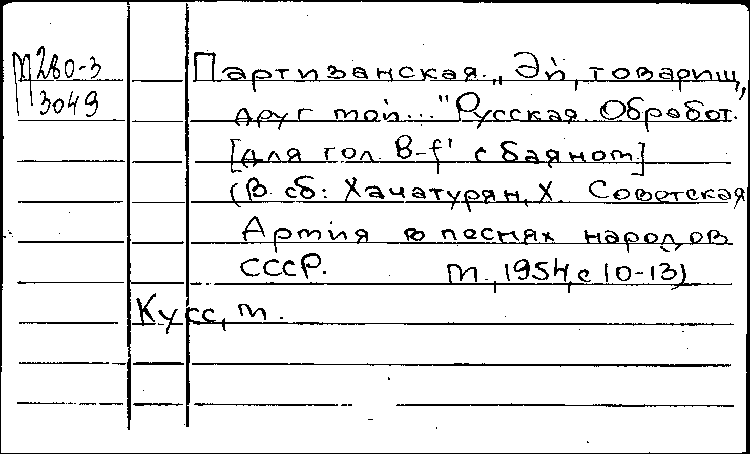 М280-3
3049
Партизанская. „Эй, товарищ,
друг мой..." Русская. Обработ.
[для гол. B-f' с баяном]
(В сб: Хачатурян, Х. Советская
Армия в песнях народов
СССР. М., 1954, с 10-13)
Кусс, М.